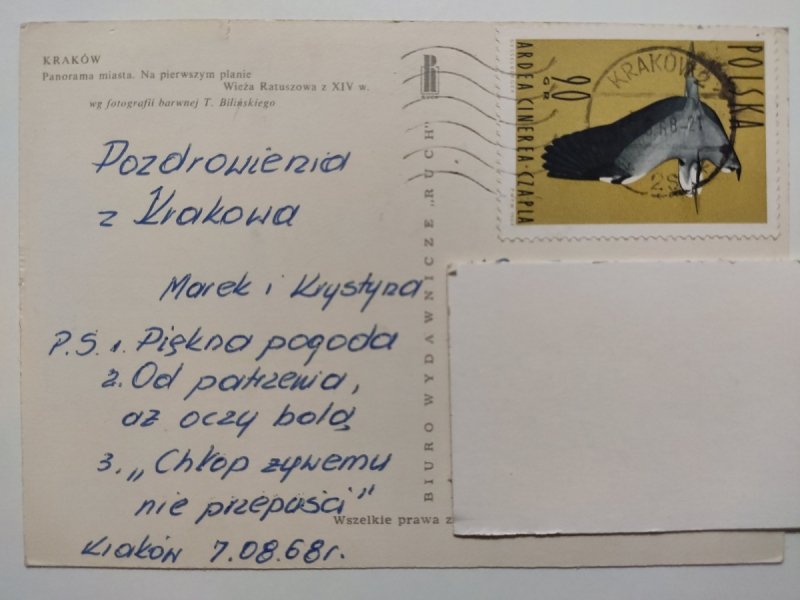 KRAKÓW
Panorama miasta. Na pierwszym planie
Wieża Ratuszowa z XIV w.
wg fotografii barwnej T. Bilińskiego
Pozdrowienia
z Krakowa
Marek i Krystyna
P.S. 1. Piękna pogoda
2. Od patrzenia,
aż oczy bolą
3. „Chłop żywemu
nie przepuści"
Kraków 7.08.68r.
Wszelkie prawa z
BIURO WYDAWNICZE „RUCH"
POLSKA
ARDEA CINEREA · CZAPLA
90
GR
KRAKÓW 2